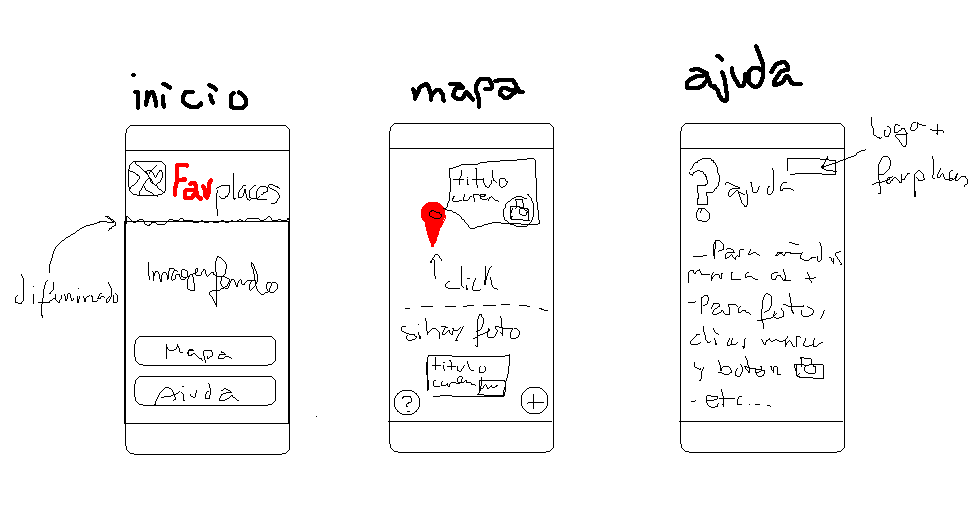 inicio
Favplaces
difuminado
Imagen fondo
Mapa
Aiuda
mapa
titulo
click
si hay foto
titulo
?
+
ajuda
logo +
favplaces
? ajuda
- Para añadir
marca as +
- Para foto,
clicas marca
y boton
- etc...